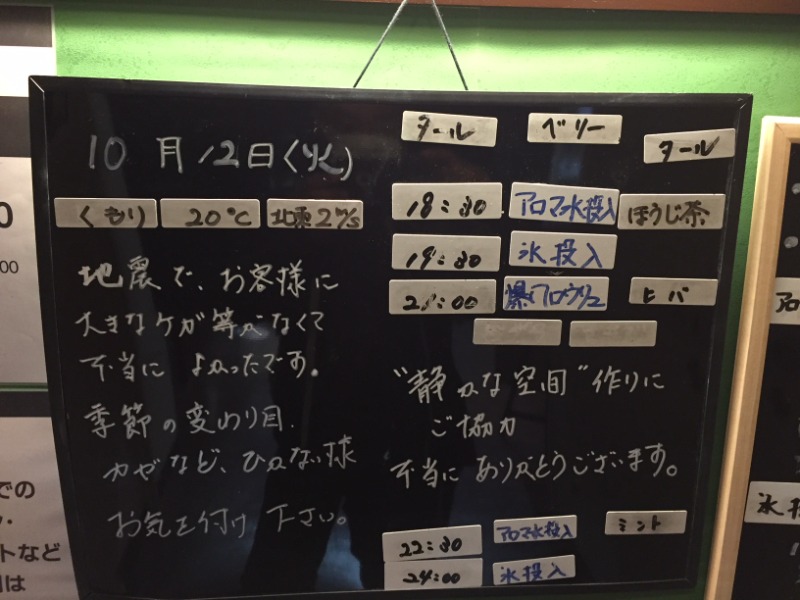 10月12日(火)
くもり 20℃ 北東2m/s
地震で、お客様に
大きなケガ等がなくて
不当に よかったです。
季節の変わり目、
カゼなど、ひかない様
お気を付け下さい。
タール ベリー タール
18:30 アロマ水投入 ほうじ茶
19:30 氷投入
21:00 爆アロウリュ ヒバ
"静かな空間"作りに
ご協力
不当にありがとうございます。
22:30 アロマ水投入 ミント
24:00 氷投入
0
00
での
トなど
は
氷投